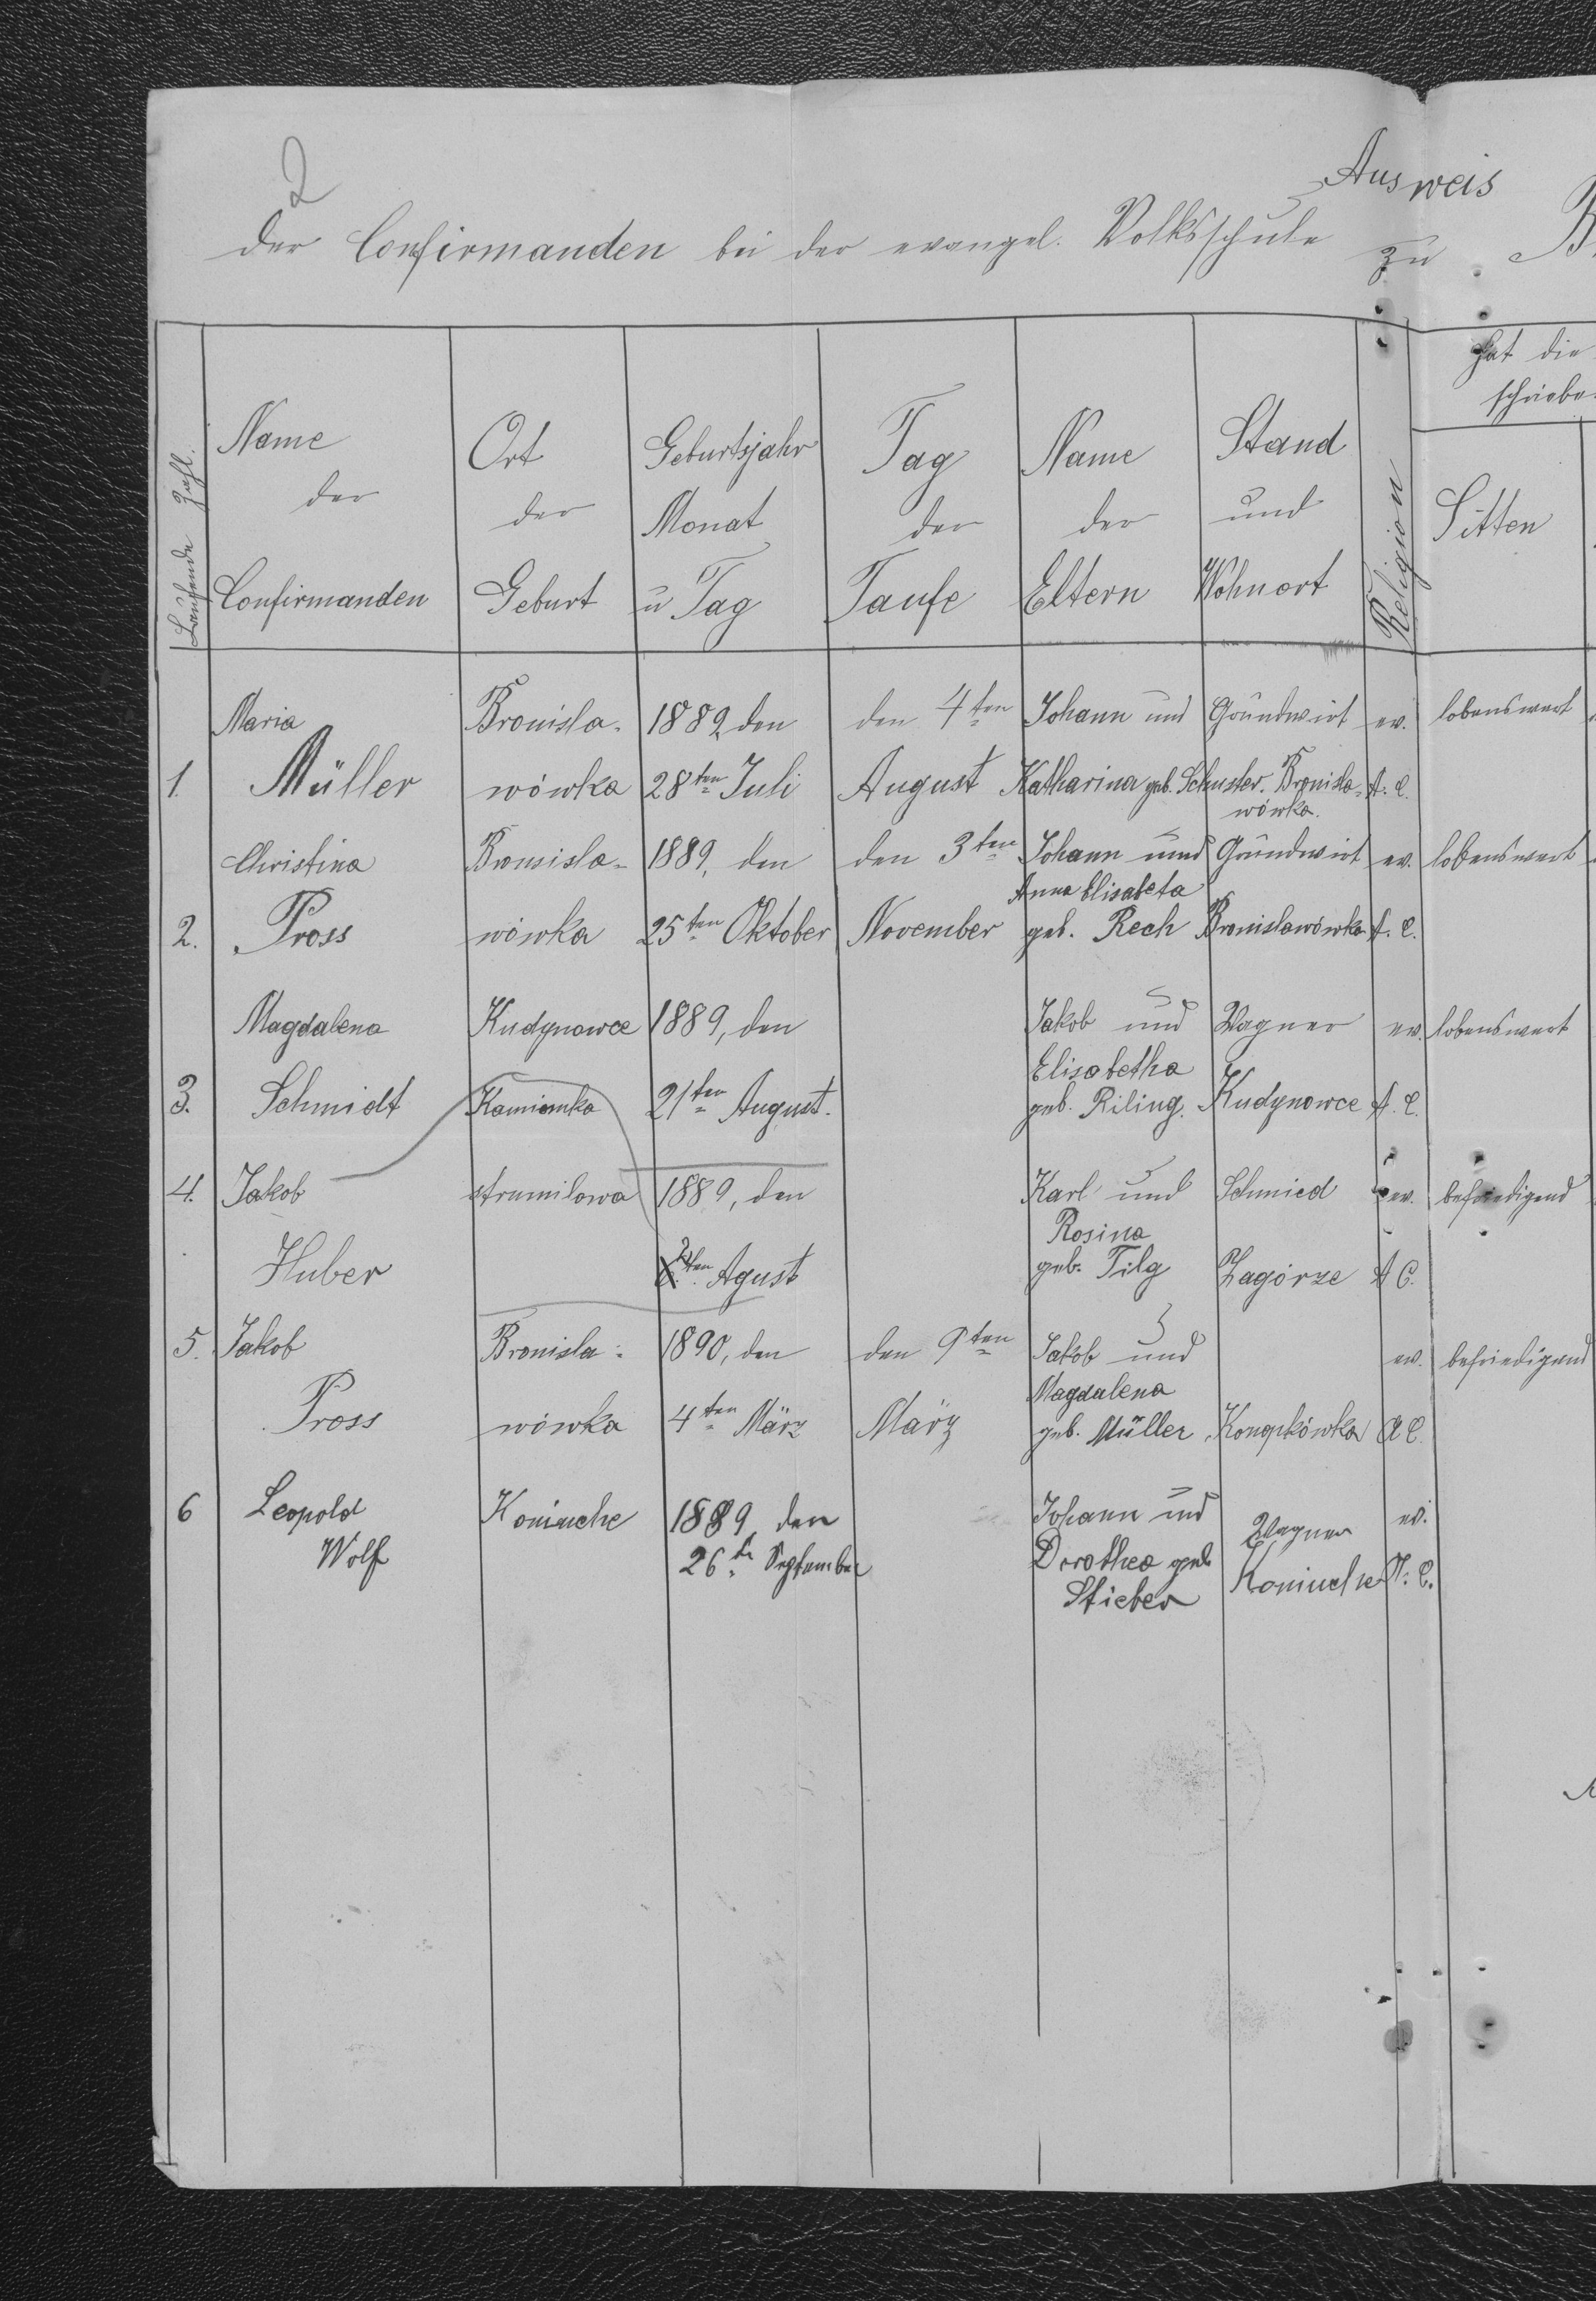 2
Ausweis
der Confirmanden bei der evangel. Volksschule zu B
Laufende Zahl.
Name
der
Confirmanden
Ort
der
Geburt
Geburtsjahr
Monat
u Tag
Tag
der
Taufe
Name
der
Eltern
Stand
und
Wohnort
Religion
hat die
schriebe
Sitten
Maria Bronisla- 1889 den den 4ten Johann und Grundwirt ev. lobenswert
1. Müller wówka 28ten Juli August Katharina geb. Schuster. Bronisla- A. C.
wówka.
Christina Bronisla- 1889, den den 3ten Johann und Grundwirt ev. lobenswert
Anna Elisabeta
2. Pross wówka 25ten Oktober November geb. Rech Bronislawówka A. C.
Magdalena Kudynowce 1889, den Jakob und Wagner ev. lobenswert
Elisabetha
3. Schmidt Kamionka 21ten August. geb. Riling. Kudynowce A. C.
4. Jakob strumilowa 1889, den Karl und Schmied ev. befriedigend
Rosina
Huber 2ten Agust geb. Tilg Zagórze A C.
5. Jakob Bronisla- 1890, den den 9ten Jakob und ev. befriedigend
Magdalena
Pross wówka 4ten März März geb. Müller Konopkówka A C.
6 Leopold Koniuche 1889 den Johann und Wagner ev.
Wolf 26te September Dorothea geb Koniuche A. C.
Stieber